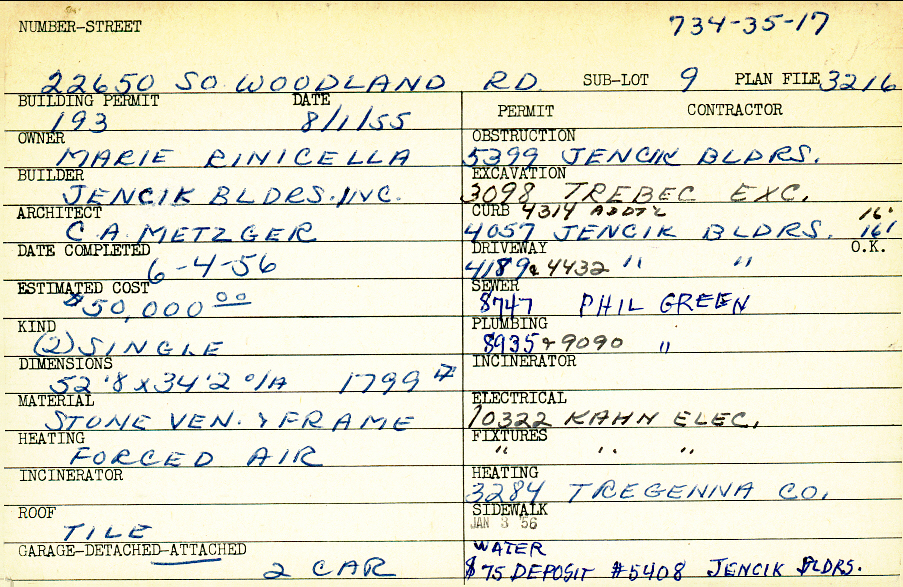 NUMBER-STREET
734-35-17
22650 SO. WOODLAND RD. SUB-LOT 9 PLAN FILE 3216
BUILDING PERMIT DATE
193 8/1/55
OWNER
MARIE RINICELLA
BUILDER
JENCIK BLDRS. INC.
ARCHITECT
C.A. METZGER
DATE COMPLETED
6-4-56
ESTIMATED COST
$50,000 00
KIND
(2) SINGLE
DIMENSIONS
52'8 x 34'2 o/A 1799
MATERIAL
STONE VEN. & FRAME
HEATING
FORCED AIR
INCINERATOR
ROOF
TILE
GARAGE-DETACHED-ATTACHED
2 CAR
PERMIT CONTRACTOR
OBSTRUCTION
5399 JENCIK BLDRS.
EXCAVATION
3098 TREBEC EXC.
CURB 4314 ADDT'L 16'
4057 JENCIK BLDRS. 16'
DRIVEWAY O.K.
4189 & 4432 " "
SEWER
8747 PHIL GREEN
PLUMBING
8935 & 9090 "
INCINERATOR
ELECTRICAL
10322 KAHN ELEC.
FIXTURES
" " "
HEATING
3284 TREGENNA CO.
SIDEWALK
JAN 3 '56
WATER
$75 DEPOSIT #5408 JENCIK BLDRS.